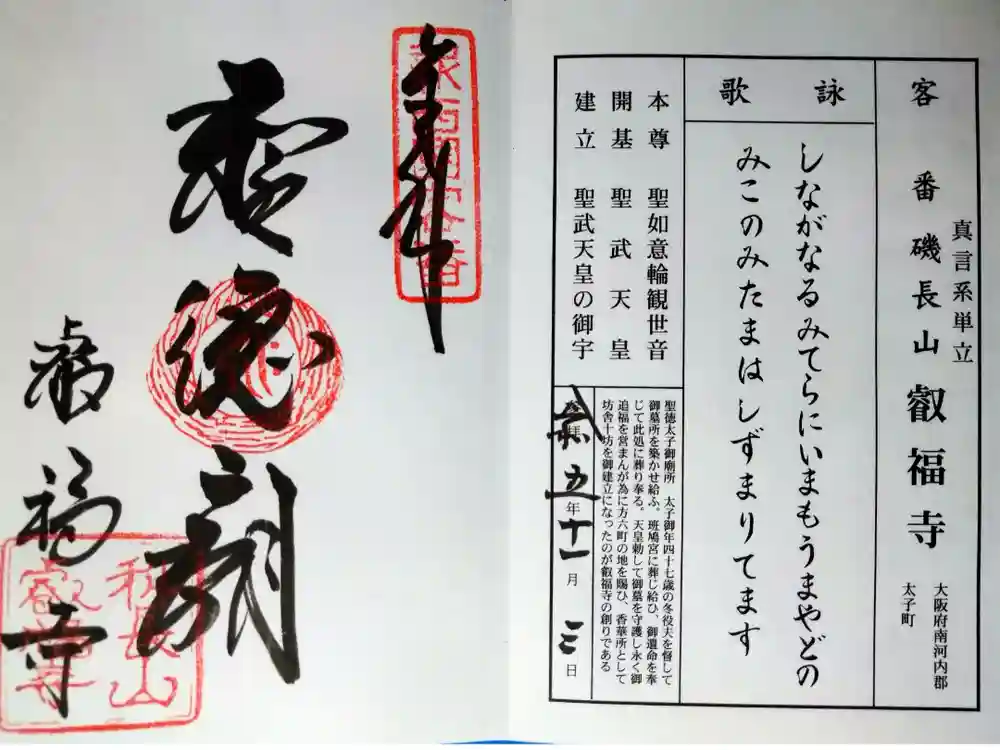 客番 磯長山 叡福寺
真言系単立
大阪府南河内郡
太子町
詠歌
しながなるみてらにいまもうまやどの
みこのみたまはしずまりてます
本尊 聖如意輪観世音
開基 聖武天皇
建立 聖武天皇の御宇
聖徳太子御廟所 太子御年四十七歳の冬役夫を督して
御墓所を築かせ給ふ。班鳩宮に葬じ給ひ、御遺命を奉
じて此処に葬り奉る。天皇勅して御墓を守護し永く御
追福を営まんが為に方六町の地を賜ひ、香華所として
坊舎十坊を御建立になったのが叡福寺の創りである
五年十一月三日
新西国客番
奉拝
聖徳廟
叡福寺
磯長山
叡福寺